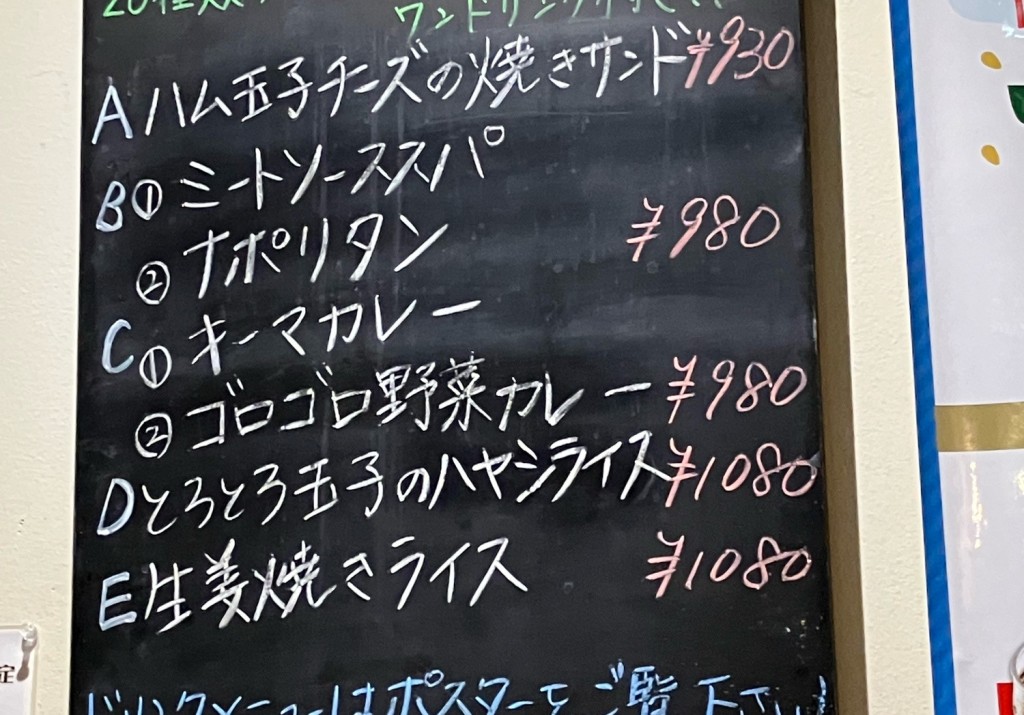 ワンドリンク
A ハム玉子チーズの焼きサンド ¥930
B① ミートソーススパ
② ナポリタン ¥980
C① キーマカレー
② ゴロゴロ野菜カレー ¥980
D とろとろ玉子のハヤシライス ¥1080
E 生姜焼きライス ¥1080
ドリンクメニューはポスターをご覧下さい!
定